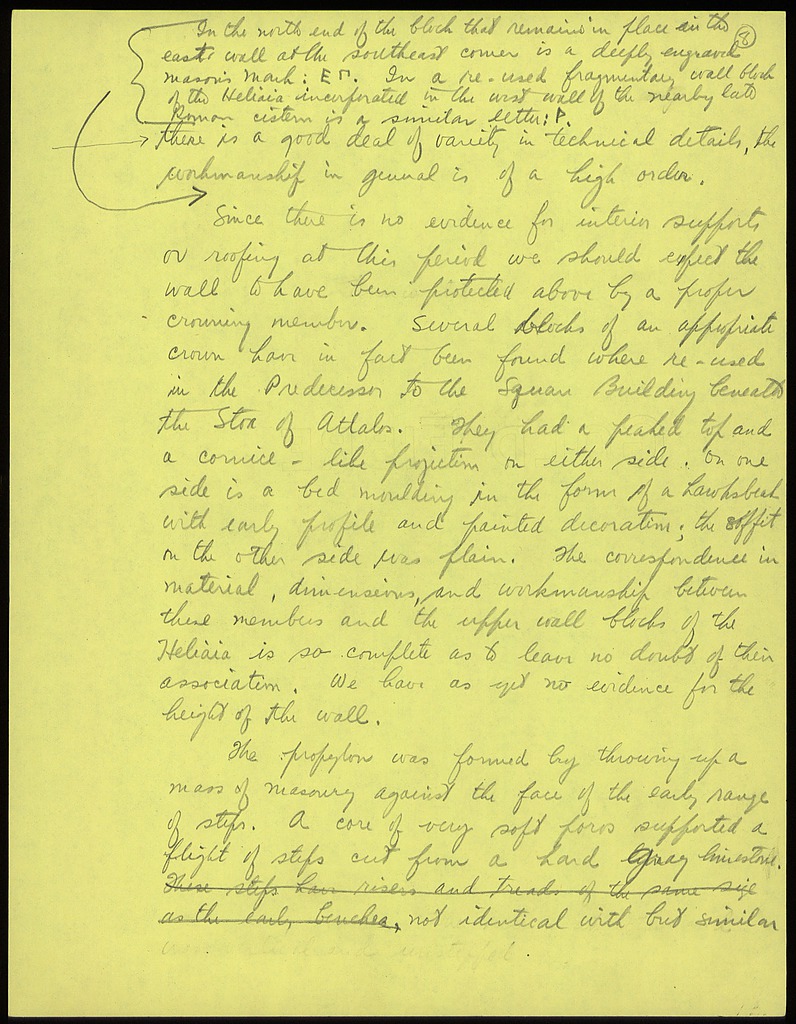 In the north end of the block that remains in place in the
east wall at the southeast corner is a deeply engraved
8
mason's mark: ΕΠ. In a re-used fragmentary wall block
of the Heliaia incorporated in the west wall of the nearby late
Roman cistern is a similar letter: P.
there is a good deal of variety in technical details, the
workmanship in general is of a high order.
Since there is no evidence for interior supports
or roofing at this period we should expect the
wall to have been protected above by a proper
crowning member. Several blocks of an appropriate
crown have in fact been found where re-used
in the Predecessor to the Square Building beneath
the Stoa of Attalos. They had a peaked top and
a cornice-like projection on either side. On one
side is a bed moulding in the form of a hawksbeak
with early profile and painted decoration; the soffit
on the other side was plain. The correspondence in
material, dimensions, and workmanship between
these members and the upper wall blocks of the
Heliaia is so complete as to leave no doubt of their
association. We have as yet no evidence for the
height of the wall.
The propylon was formed by throwing up a
mass of masonry against the face of the early range
of steps. A core of very soft poros supported a
flight of steps cut from a hard gray limestone.
These steps have risers and treads of the same size
as the early benches, not identical with but similar